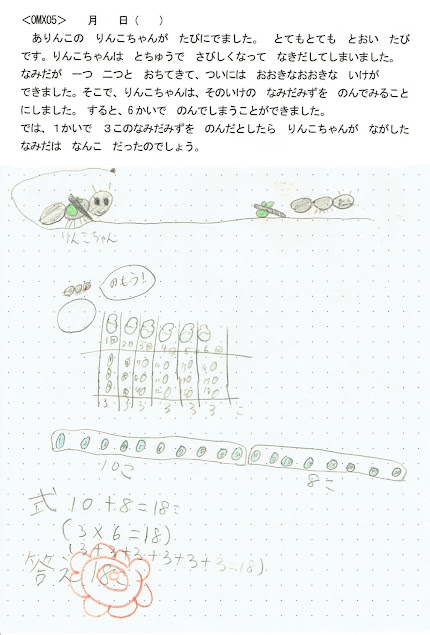 <OMX05>　月　日（　）
ありんこの　りんこちゃんが　たびにでました。　とてもとても　とおい　たび
です。りんこちゃんは　とちゅうで　さびしくなって　なきだしてしまいました。
なみだが　一つ　二つと　おちてきて、ついには　おおきなおおきな　いけが
できました。そこで、りんこちゃんは、そのいけの　なみだみずを　のんでみること
にしました。　すると、6かいで　のんでしまうことができました。
では、1かいで　3このなみだみずを　のんだとしたら　りんこちゃんが　ながした
なみだは　なんこ　だったのでしょう。
りんこちゃん
のもう!
3 3 3 3 3 3 こ
10こ
8こ
式 10+8=18こ
(3×6=18)
(3+3+3+3+3+3=18)
答え 18こ